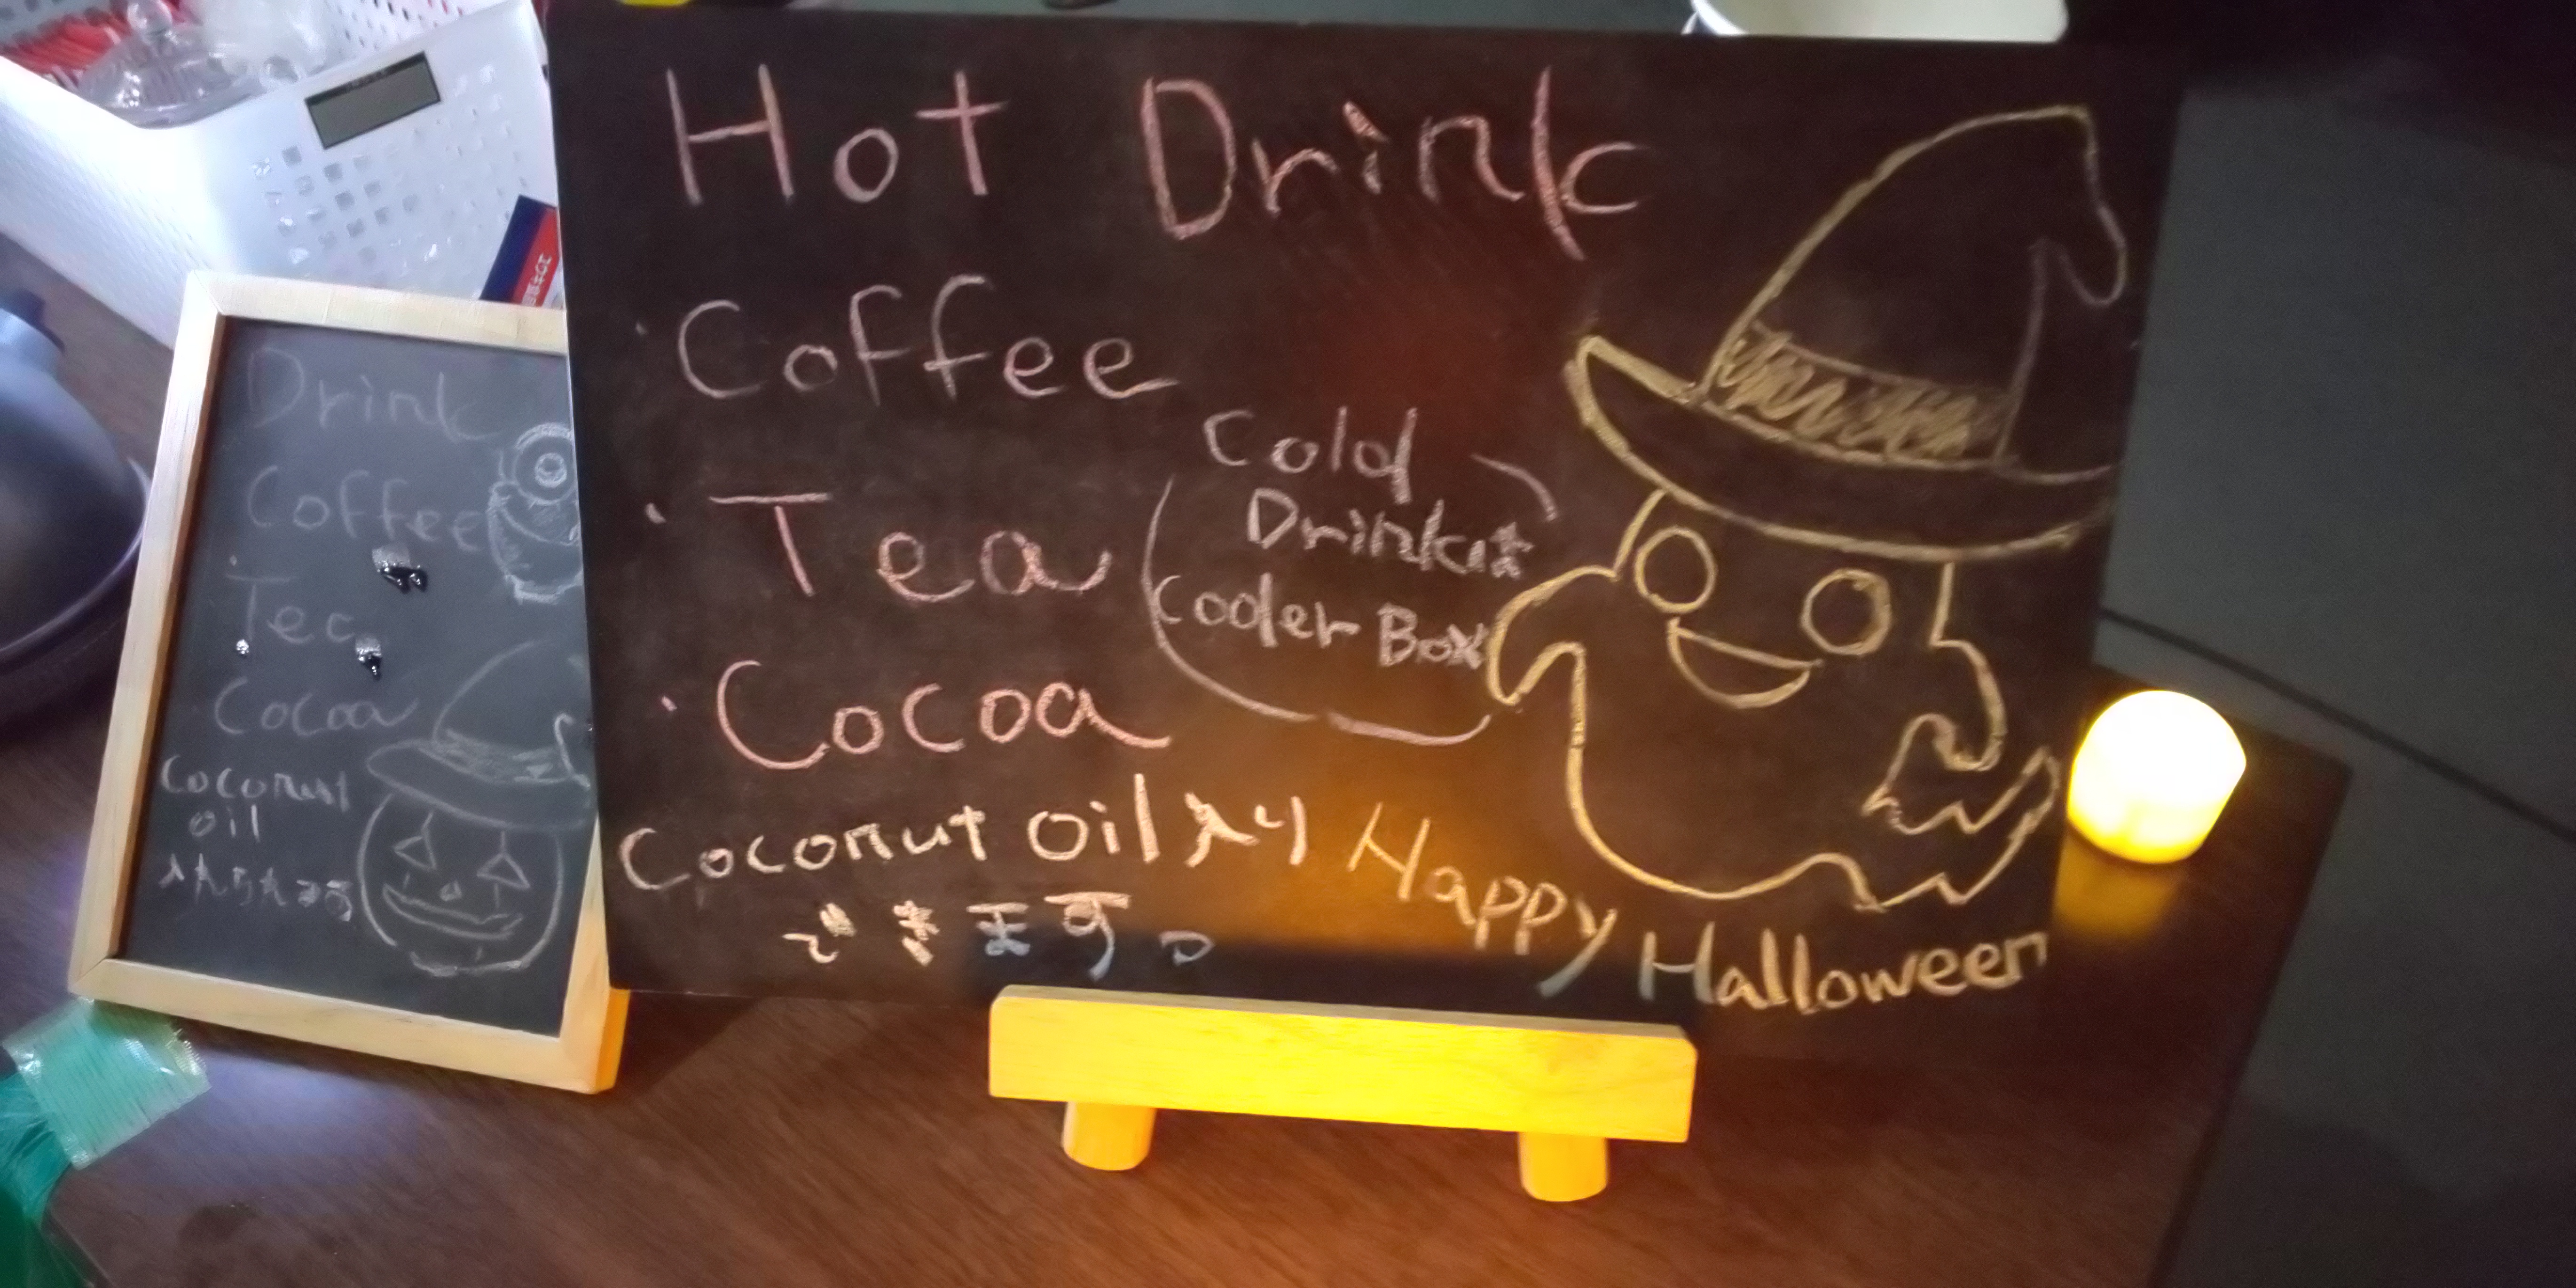 Hot Drink
・Coffee
・Tea
・Cocoa
Cold
Drinkは
Cooler Box
Coconut oil入り
できます。
Happy
Halloween
Drink
Coffee
Tea
Cocoa
Coconut
oil
入れられる